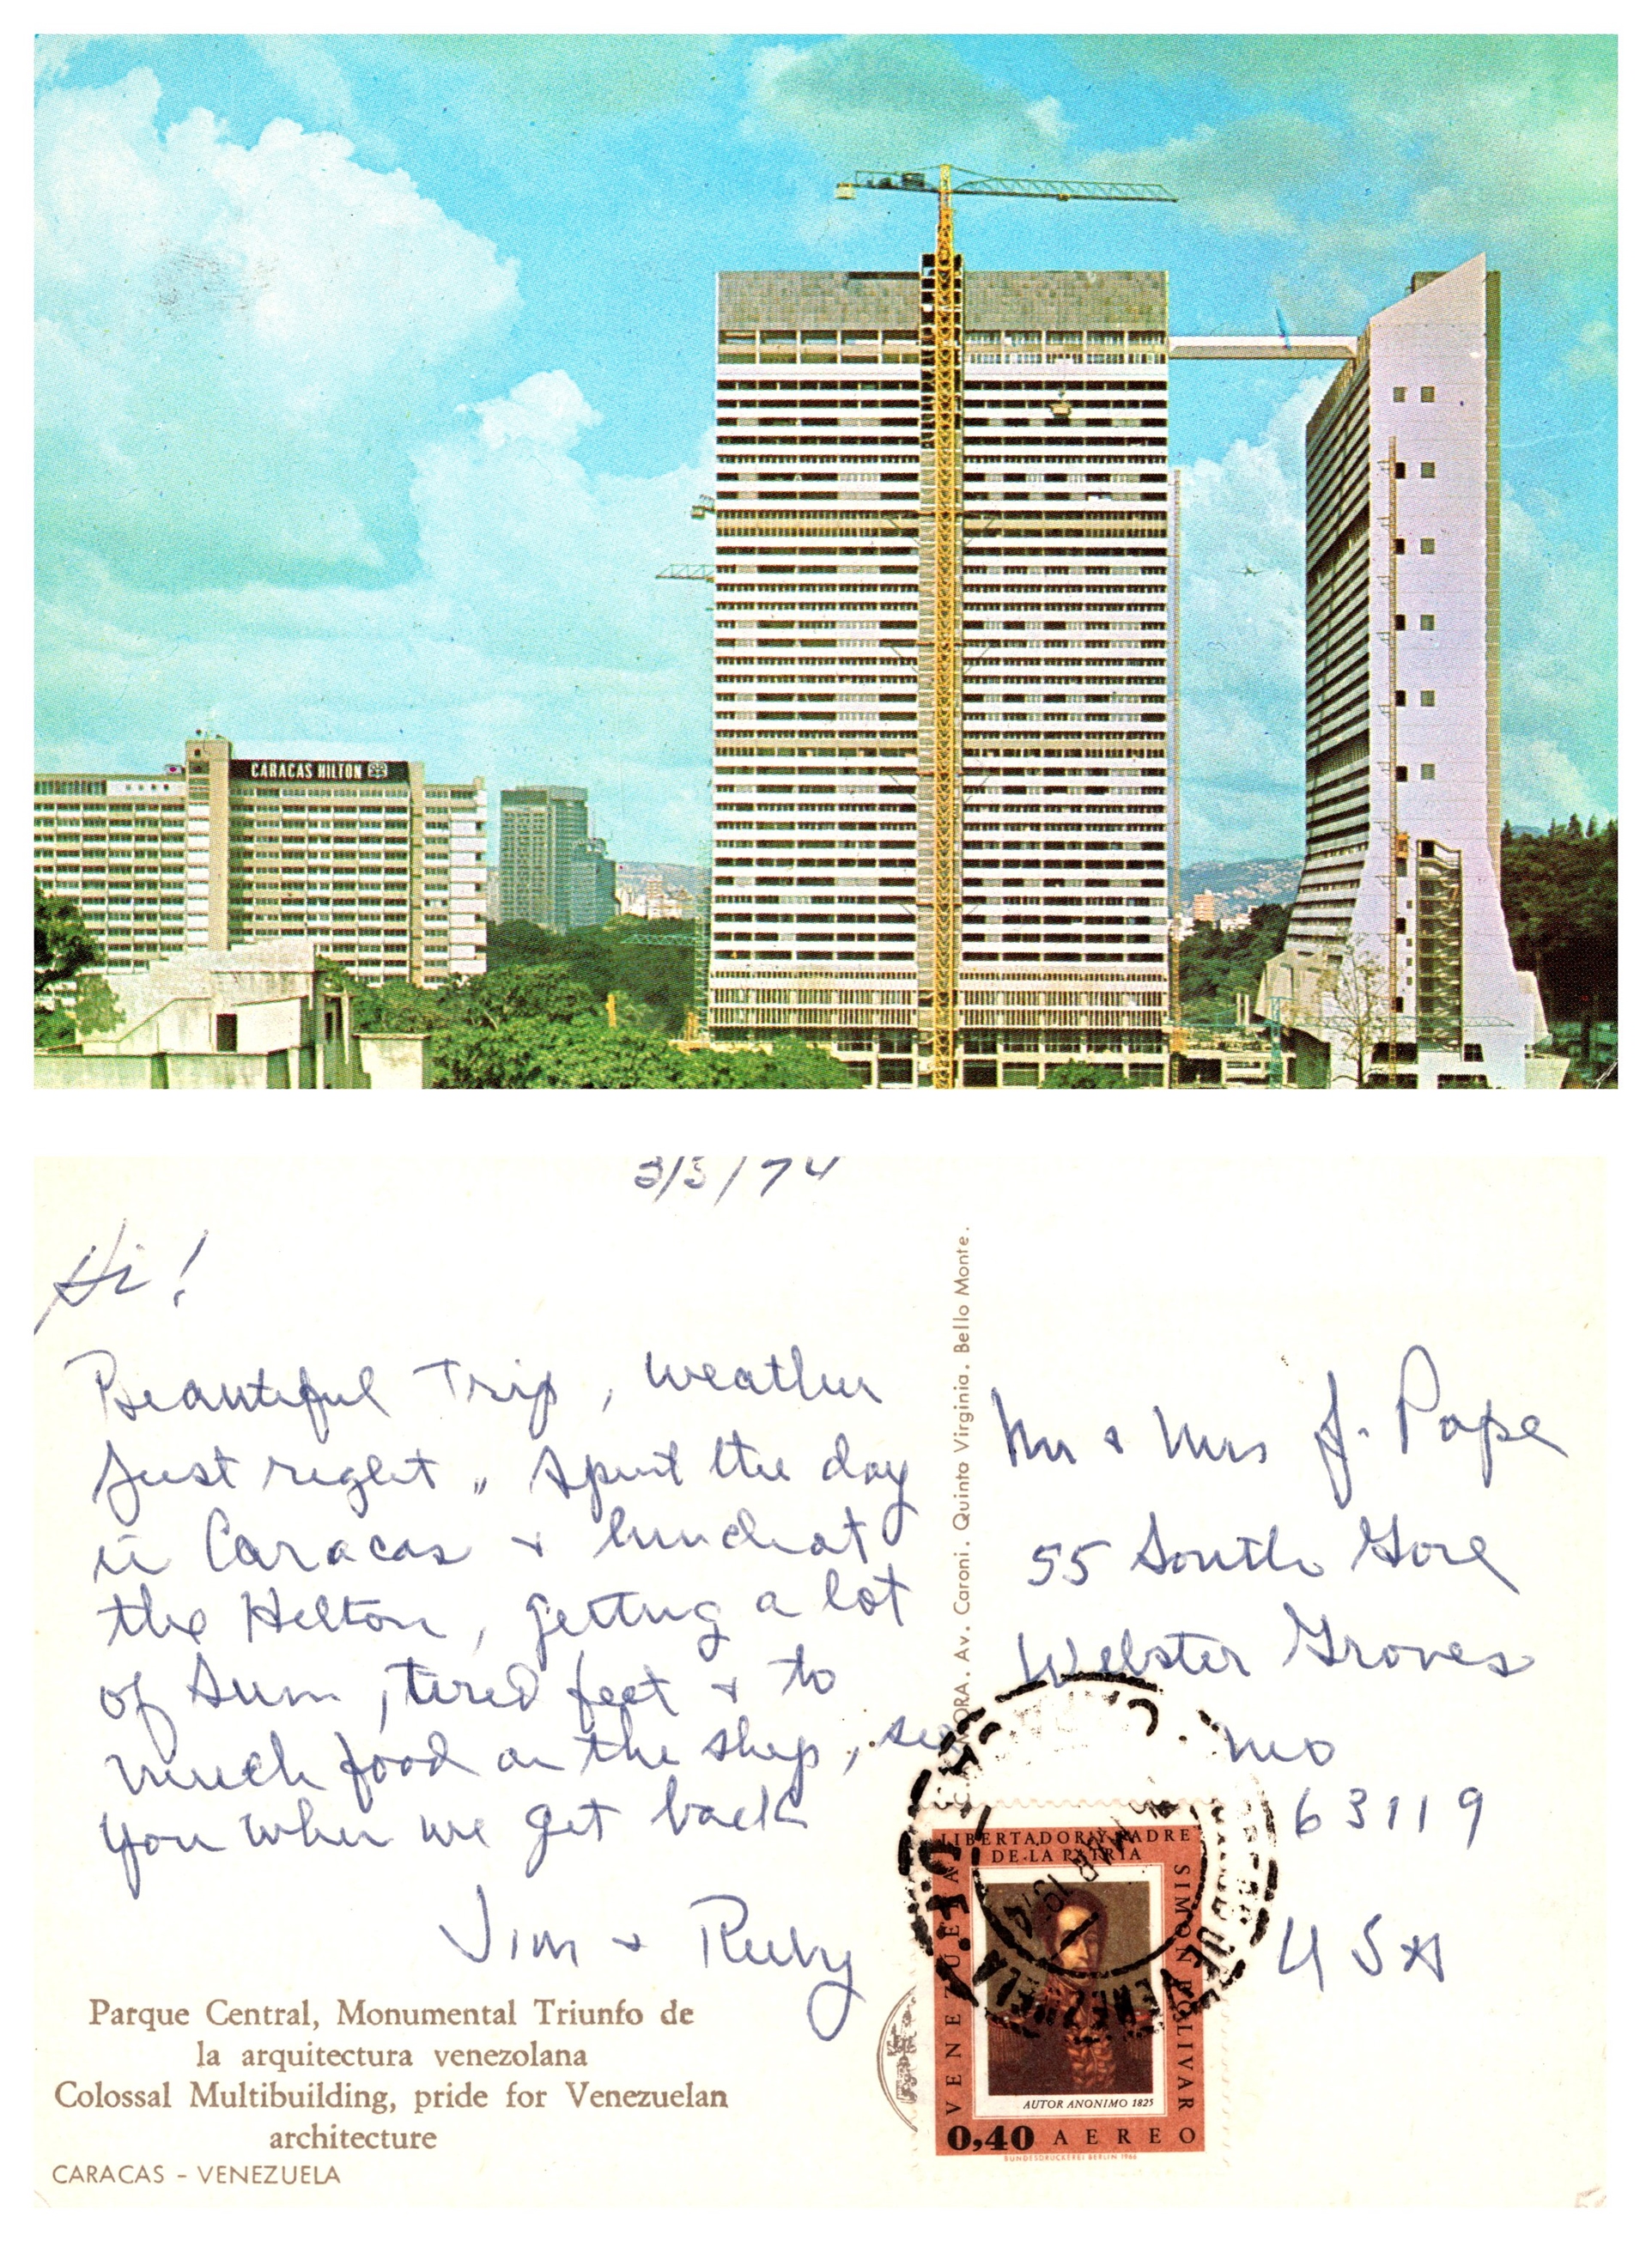 CARACAS HILTON
3/5/74
Hi!
Beautiful Trip, weather
just right, spent the day
in Caracas & lunch at
the Hilton, getting a lot
of sun, tired feet & to
much food on the ship, see
you when we get back
Jim & Ruby
Parque Central, Monumental Triunfo de
la arquitectura venezolana
Colossal Multibuilding, pride for Venezuelan
architecture
CARACAS - VENEZUELA
ORA. Av. Caroni. Quinta Virginia. Bello Monte.
Mr & Mrs J. Pape
55 South Gore
Webster Groves
Mo
63119
USA
LIBERTADOR Y PADRE
DE LA PATRIA
SIMON BOLIVAR
VENEZUELA
AUTOR ANONIMO 1825
0,40 AEREO
BUNDESDRUCKEREI BERLIN 1966
VENEZUELA